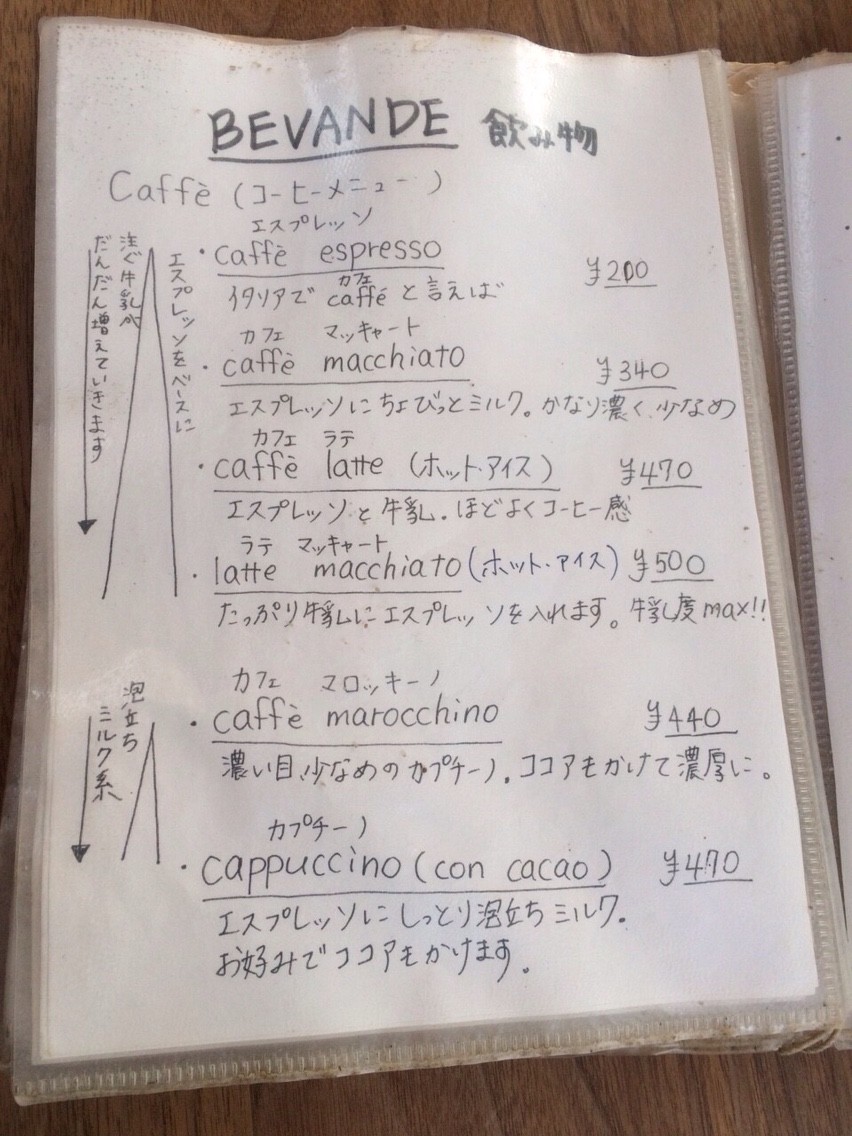 BEVANDE 飲み物
Caffè (コーヒーメニュー)
エスプレッソをベースに
注ぐ牛乳が
だんだん増えていきます
エスプレッソ
・caffè espresso ¥200
イタリアで caffé と言えば
カフェ
カフェ マッキャート
・caffè macchiato ¥340
エスプレッソにちょびっとミルク。かなり濃く、少なめ
カフェ ラテ
・caffè latte (ホット・アイス) ¥470
エスプレッソと牛乳。ほどよくコーヒー感
ラテ マッキャート
・latte macchiato (ホット・アイス) ¥500
たっぷり牛乳にエスプレッソを入れます。牛乳度max!!
泡立ち
ミルク系
カフェ マロッキーノ
・caffè marocchino ¥440
濃い目、少なめのカプチーノ。ココアもかけて濃厚に。
カプチーノ
・cappuccino (con cacao) ¥470
エスプレッソにしっとり泡立ちミルク。
お好みでココアもかけます。